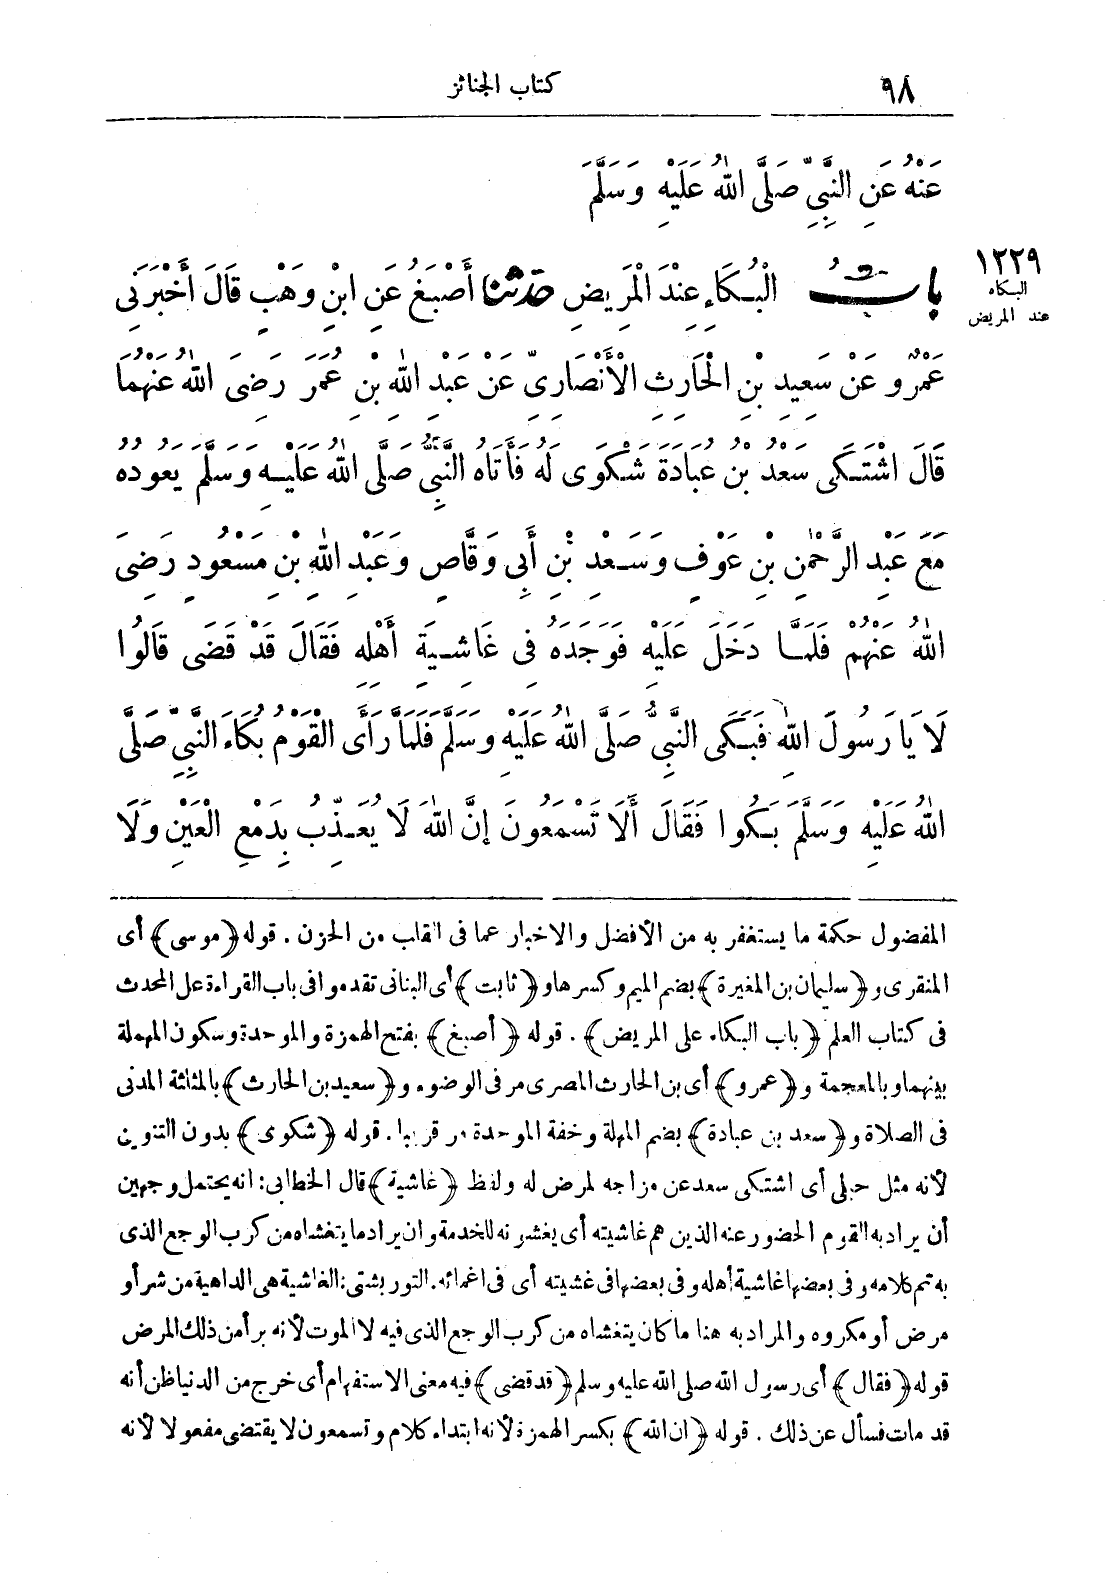 ٩٨
كتاب الجنائز
عَنْهُ عَنِ النَّبِيِّ صَلَّى اللهُ عَلَيْهِ وَسَلَّمَ
١٢٢٩
البكاء
عند المريض
بابُ الْبُكَاءِ عِنْدَ الْمَرِيضِ حَدَّثَنَا أَصْبَغُ عَنِ ابْنِ وَهْبٍ قَالَ أَخْبَرَنِي
عَمْرٌو عَنْ سَعِيدِ بْنِ الْحَارِثِ الْأَنْصَارِيِّ عَنْ عَبْدِ اللهِ بْنِ عُمَرَ رَضِيَ اللهُ عَنْهُمَا
قَالَ اشْتَكَى سَعْدُ بْنُ عُبَادَةَ شَكْوَى لَهُ فَأَتَاهُ النَّبِيُّ صَلَّى اللهُ عَلَيْهِ وَسَلَّمَ يَعُودُهُ
مَعَ عَبْدِ الرَّحْمٰنِ بْنِ عَوْفٍ وَسَعْدِ بْنِ أَبِي وَقَّاصٍ وَعَبْدِ اللهِ بْنِ مَسْعُودٍ رَضِيَ
اللهُ عَنْهُمْ فَلَمَّا دَخَلَ عَلَيْهِ فَوَجَدَهُ فِي غَاشِيَةِ أَهْلِهِ فَقَالَ قَدْ قَضَى قَالُوا
لَا يَا رَسُولَ اللهِ فَبَكَى النَّبِيُّ صَلَّى اللهُ عَلَيْهِ وَسَلَّمَ فَلَمَّا رَأَى الْقَوْمُ بُكَاءَ النَّبِيِّ صَلَّى
اللهُ عَلَيْهِ وَسَلَّمَ بَكَوْا فَقَالَ أَلَا تَسْمَعُونَ إِنَّ اللهَ لَا يُعَذِّبُ بِدَمْعِ الْعَيْنِ وَلَا
المفضول حكمة ما يستغفر به من الأفضل والاخبار عما فى القلب من الحزن . قوله ﴿موسى﴾ أى
المنقرى و ﴿سليمان بن المغيرة﴾ بضم الميم وكسرها و ﴿ثابت﴾ أى البنانى تقدموا فى باب القراءة على المحدث
فى كتاب العلم ﴿باب البكاء على المريض﴾ . قوله ﴿أصبغ﴾ بفتح الهمزة والموحدة وسكون المهملة
بينهما وبالمعجمة و ﴿عمرو﴾ أى بن الحارث المصرى مر فى الوضوء و ﴿سعيد بن الحارث﴾ بالمثلثة المدنى
فى الصلاة و ﴿سعد بن عبادة﴾ بضم المهملة وخفة الموحدة مر قريبا . قوله ﴿شكوى﴾ بدون التنوين
لأنه مثل حبلى أى اشتكى سعد عن مزاجه لمرض له ولفظ ﴿غاشية﴾ قال الخطابى: انه يحتمل وجهين
أن يراد به القوم الحضور عنه الذين هم غاشيته أى يغشونه للخدمة وان يراد ما يتغشاه من كرب الوجع الذى
به تم كلامه وفى بعضها غاشية أهله وفى بعضها فى غشيته أى فى اغمائه. التوربشتى: الغاشية هى الداهية من شر أو
مرض أو مكروه والمراد به هنا ما كان يتغشاه من كرب الوجع الذى فيه لا الموت لأنه برأ من ذلك المرض
قوله ﴿فقال﴾ أى رسول الله صلى الله عليه وسلم ﴿قد قضى﴾ فيه معنى الاستفهام أى خرج من الدنيا ظن أنه
قد مات فسأل عن ذلك . قوله ﴿ان الله﴾ بكسر الهمزة لأنه ابتداء كلام وتسمعون لا يقتضى مفعولا لأنه